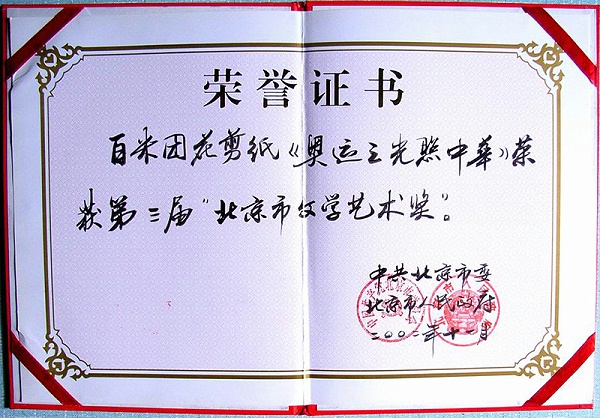 荣誉证书
百米团花剪纸《奥运之光照中华》荣
获第三届“北京市文学艺术奖”。
中共北京市委
北京市人民政府
二00二年十一月